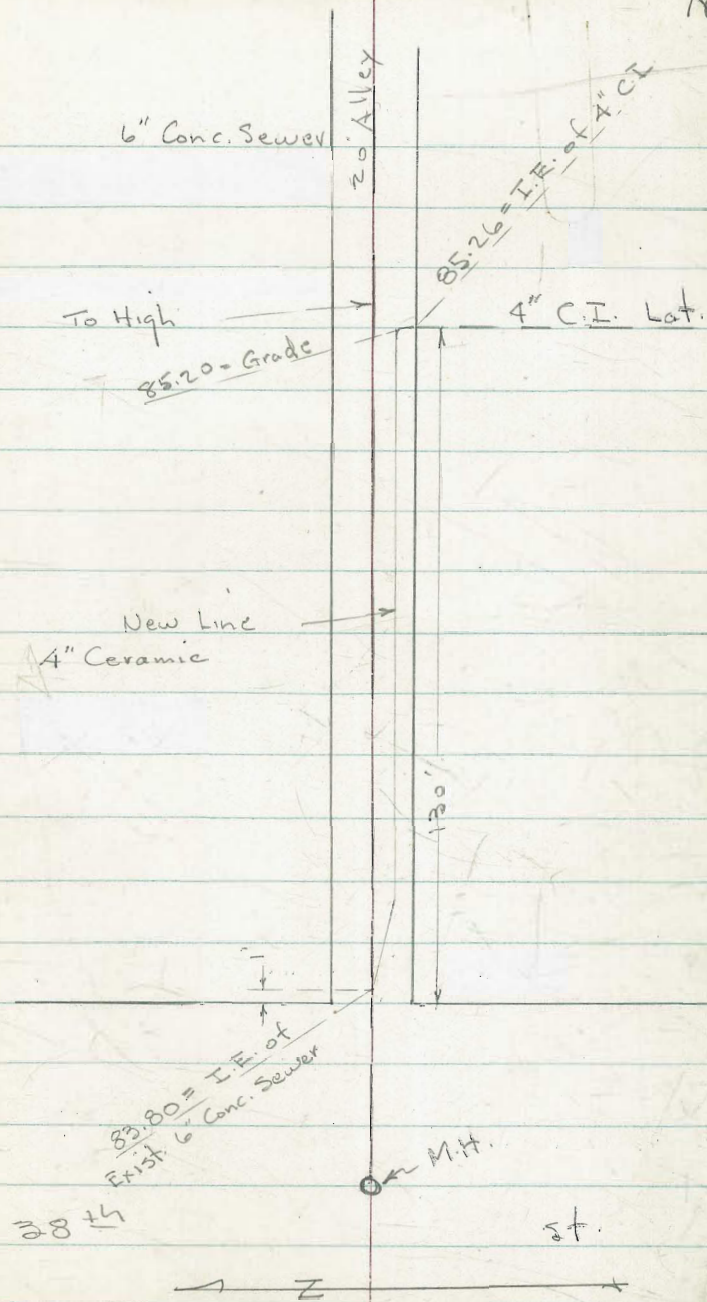 20' Alley
6" Conc. Sewer
85.26 = I.E. of 4" C.I.
To High
4" C.I. Lat.
85.20 = Grade
New Line
4" Ceramic
130'
1'
83.80 = I.E. of
Exist. 6" Conc. Sewer
M.H.
38th St.
N